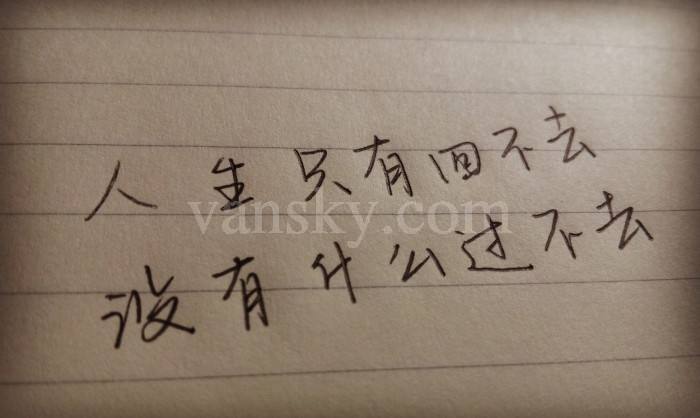 人生只有回不去
vansky.com
没有什么过不去